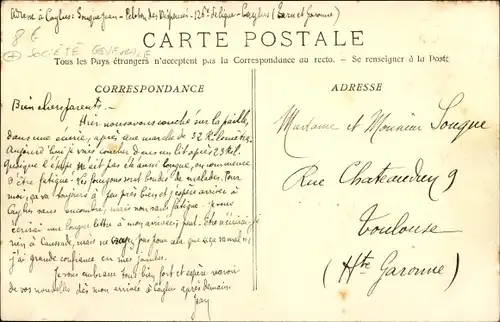 Adresse à Caylus : Souque Jean - Peloton des Dispensés - 126e de ligne - Caylus (Tarn et Garonne)
8€
SOCIÉTÉ GÉNÉRALE
CARTE POSTALE
Tous les Pays étrangers n'acceptent pas la Correspondance au recto. — Se renseigner à la Poste
CORRESPONDANCE
Bien chers parents. -
Hier nous avons couché sur la paille
dans une écurie, après une marche de 32 kilomètres
Aujourd'hui je vais coucher dans un lit après 23 kil.
Quoique l'étape n'ait pas été aussi longue, on commence
d'être fatigué. Les fourgons sont bondés de malades. Pour
moi, ça va toujours à peu près bien et j'espère arriver à
Caylus sans encombre, mais non sans fatigue. Je vous
écrirai une longue lettre à mon arrivée; peut-être n'écrirai-je
rien à Caussade, mais ne croyez pas pour cela que ça va mal
j'ai grande confiance en mes jambes.
Je vous embrasse tous bien fort et espère avoir
de vos nouvelles dès mon arrivée à Caylus après-demain.
Jean
ADRESSE
Madame et Monsieur Souque
Rue Chateaudun 9
Toulouse
(Hte Garonne)